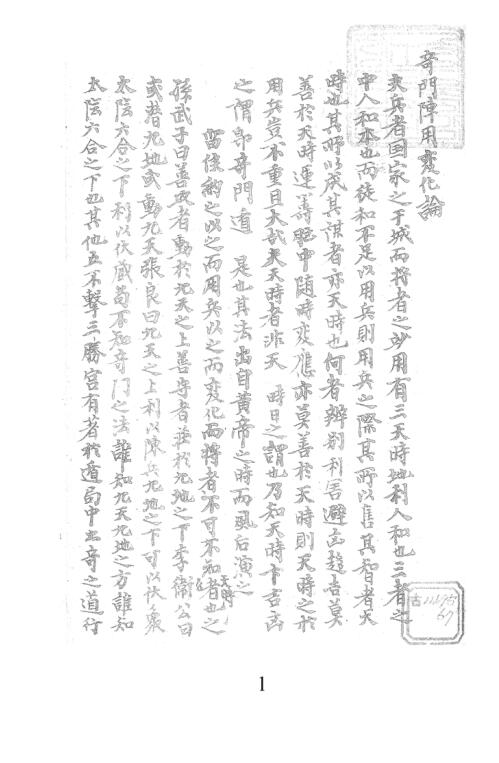 奇門陣用変化論
夫兵者国家之干城而将者之妙用有三天時地利人和也三者之
中人和本也而徒和不足以用兵則用兵之際其所以售其智者天
時也其所以成其謀者亦天時也何者辨別利害避凶趨吉莫
善於天時運籌胸中随時変応亦莫善於天時則天時之於
用兵豈不重且大哉夫天時者非天 時日之謂也乃知天時卜吉凶
之謂即奇門遁 是也其法出自黄帝之時而風后演之
留侯 之以之而用兵以之而変化而将者不可不知者也之
天時
孫武子曰善攻者動於九天之上善守者 於九地之下李衛公曰
或潜九地或動九天張良曰九天之上利以陳兵九地之下可以伏衆
太陰六合之下利以伏蔵苟不知奇門之法誰知九天九地之方誰知
太陰六合之下也其他五不撃三勝宮有著於遁局中出奇之道行
古
67
1